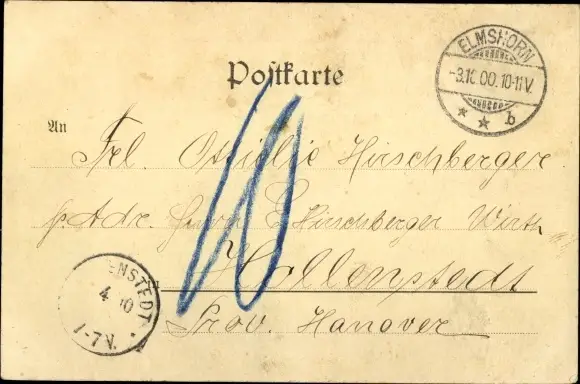 Postkarte
ELMSHORN
-3.10.00.10-11V.
* * b
An
Frl. Ottielie Hirschberger
p. Adr. Herrn E. Hirschberger Wirth
10
Hollenstedt
ENSTEDT
4 10
7-7V.
Prov. Hanover